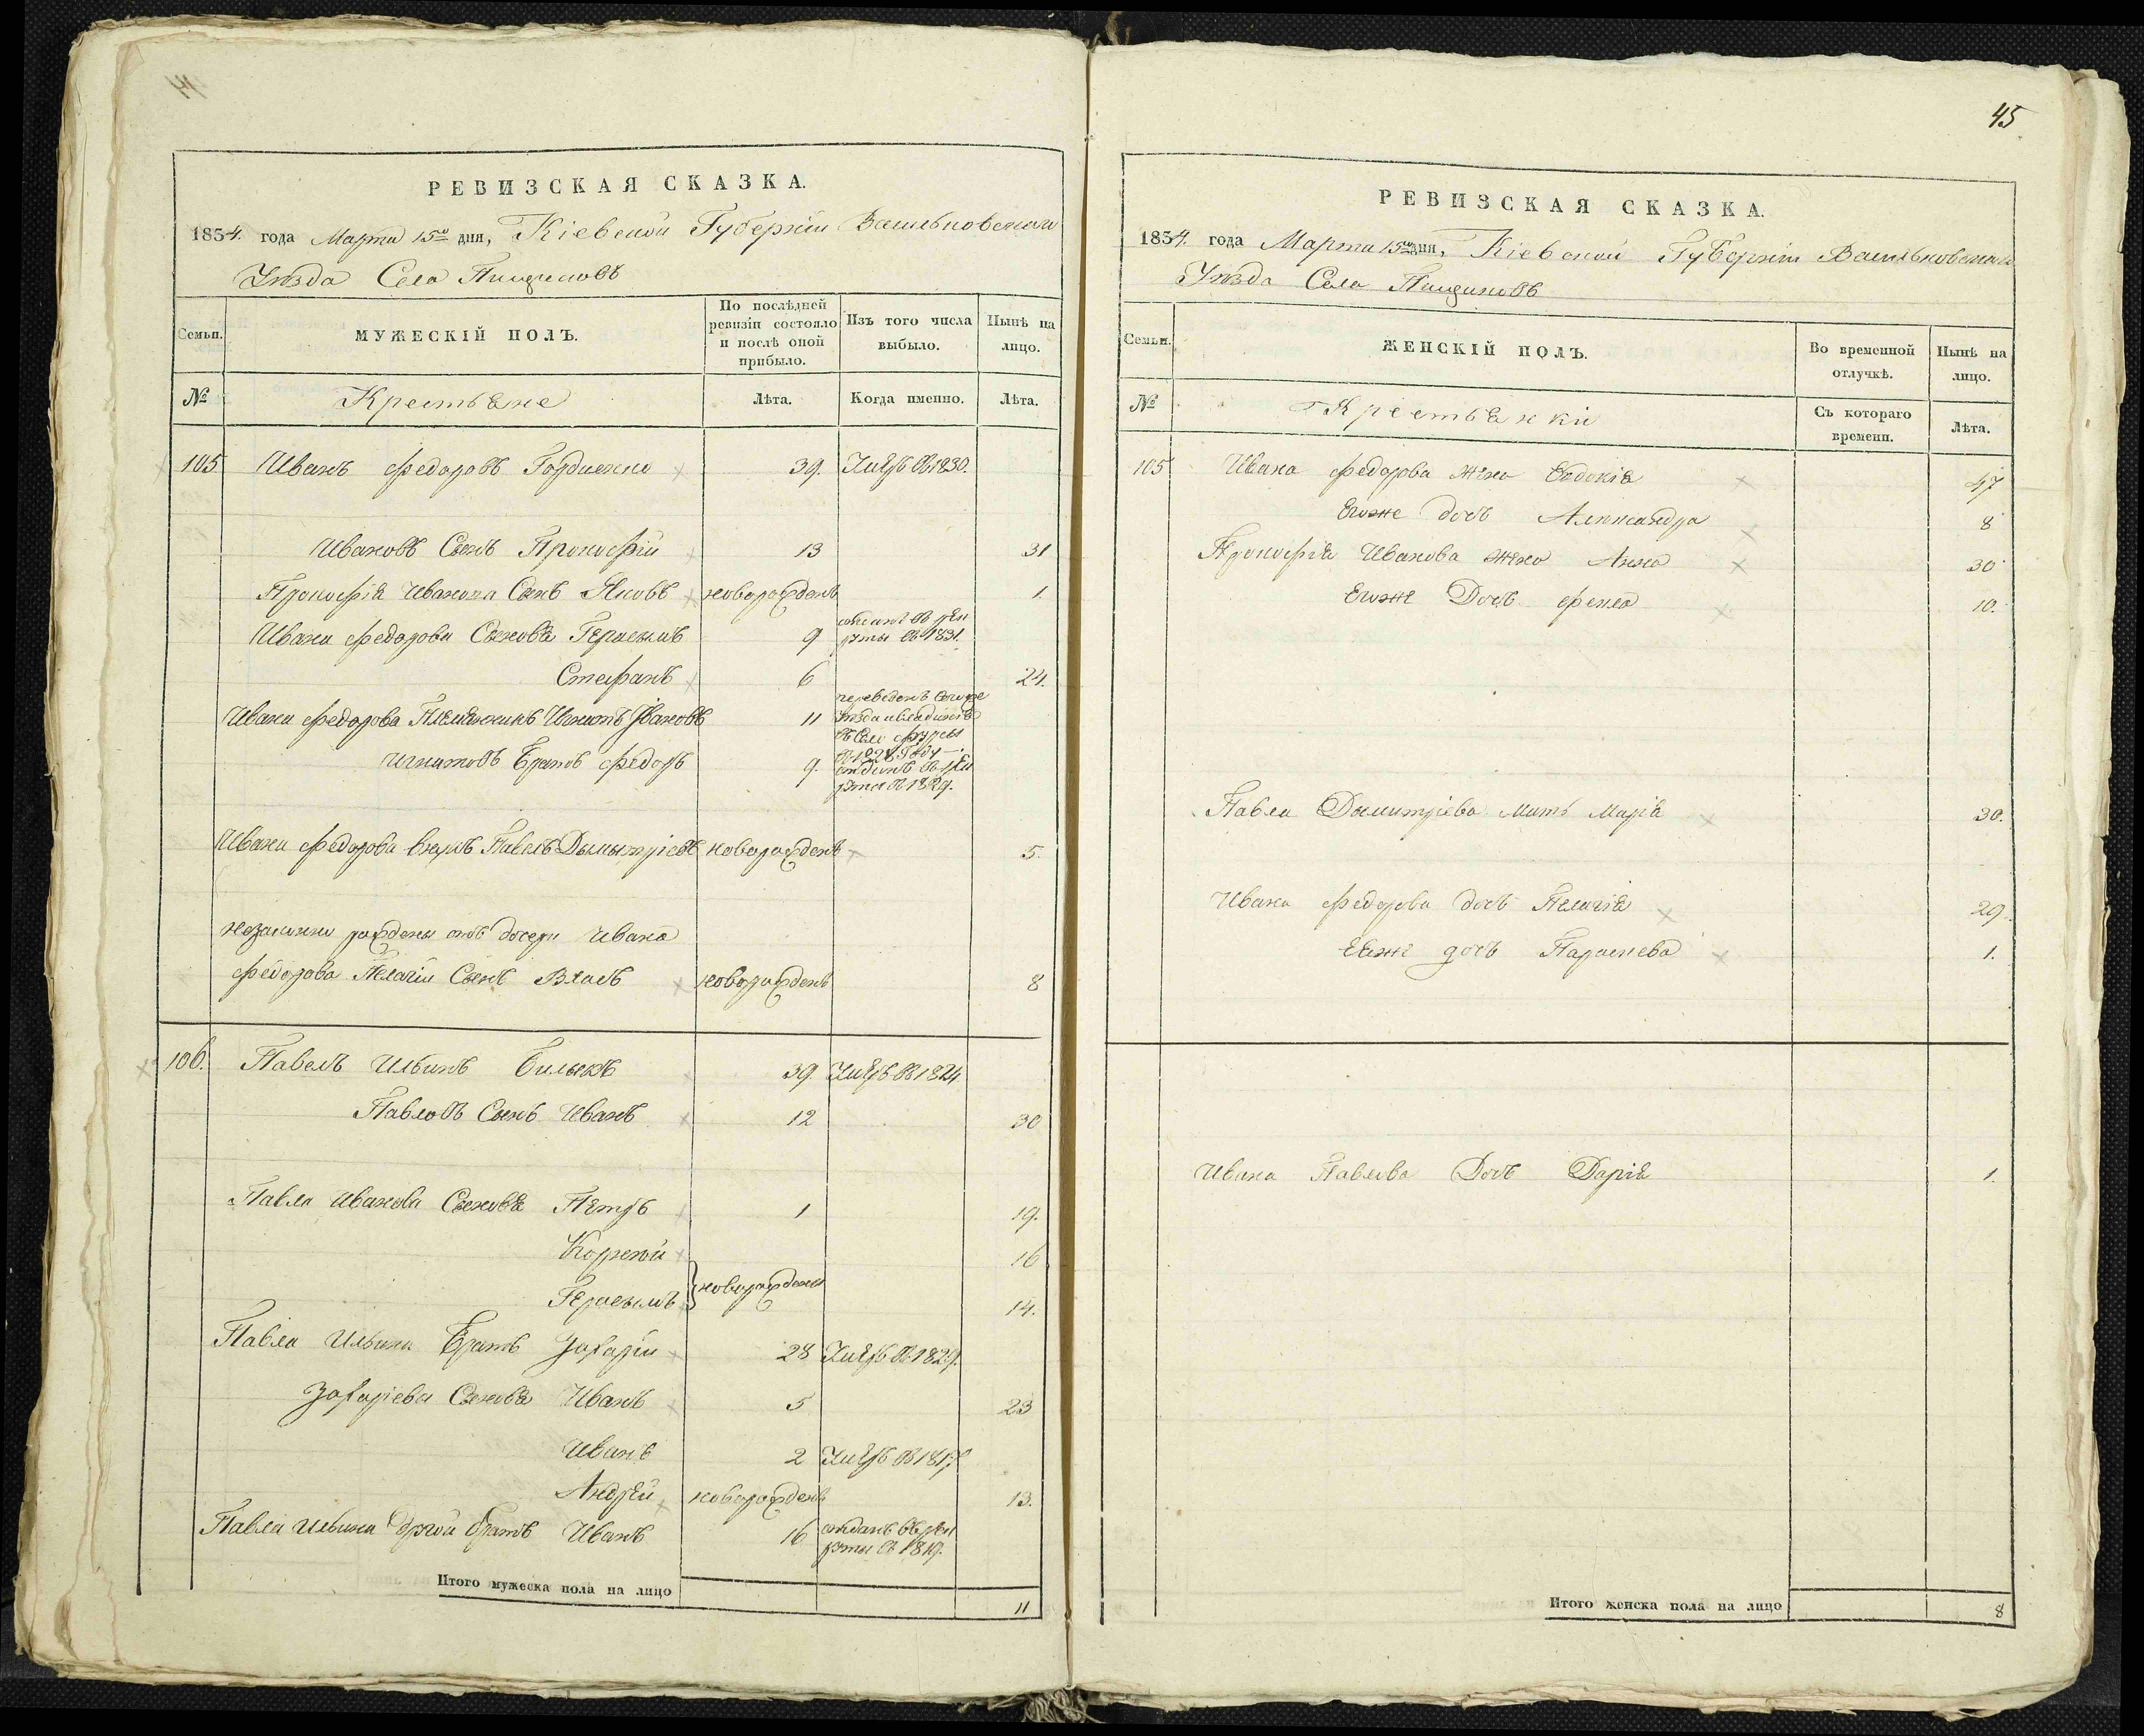 РЕВИЗСКАЯ СКАЗКА.
1834. года Марта 15го дня, Кіевской Губерніи Васильковского
Уѣзда Села Пищиковъ
Семьи.
МУЖЕСКІЙ ПОЛЪ.
По послѣдней ревизіи состояло и послѣ оной прибыло.
Изъ того числа выбыло.
Нынѣ на лицо.
№
Крестьяне
Лѣта.
Когда именно.
Лѣта.
105 Иванъ Федоровъ Гордиенко 39. Умеръ въ 1830.
Ивановъ Сынъ Прокофій 13 31
Прокофія Иванова Сынъ Яковъ новорожденъ 1.
Ивана Федорова Сыновя Герасымъ 9 отданъ въ рек
руты въ 1831.
Стефанъ 6 24.
Ивана Федорова Племянникъ Игнатъ Ивановъ 11 переведенъ
уѣзда
въ Село Фурсы
въ 1828 Году
Игнатовъ Братъ Федоръ 9. отданъ въ рек
руты въ 1829.
Ивана Федорова внукъ Павелъ Дымытріевъ новорожденъ 5.
незаконно рожденный отъ дочери Ивана
Федорова Пелагіи Сынъ Власъ новорожденъ 8
106. Павелъ Ильинъ Билыкъ 39. Умеръ въ 1824
Павловъ Сынъ Иванъ 12 30
Павла Иванова Сыновя Петръ 1 19.
Корней 16
Герасымъ новорождены 14.
Павла Ильина Братъ Захарій 28 Умеръ въ 1829.
Захаріевы Сыновя Иванъ 5 23
Иванъ 2 Умеръ въ 1817
Андрей новорожденъ 13.
Павла Ильина другой братъ Иванъ 16 отданъ въ рек
руты въ 1819.
Итого мужеска пола на лицо 11
45
РЕВИЗСКАЯ СКАЗКА.
1834. года Марта 15го дня, Кіевской Губерніи Васильковского
Уѣзда Села Пищиковъ
Семьи.
ЖЕНСКІЙ ПОЛЪ.
Во временной отлучкѣ.
Нынѣ на лицо.
№
Крестьянки
Съ котораго времени.
Лѣта.
105 Ивана Федорова жена Евдокія 47
Егоже дочь Александра 8
Прокофія Иванова жена Анна 30
Егоже Дочь Фекла 10.
Павла Дымитріева Мать Марія 30.
Ивана Федорова дочь Пелагія 29.
Еяже дочь Параскева 1.
Ивана Павлова Дочь Дарія 1.
Итого женска пола на лицо 8